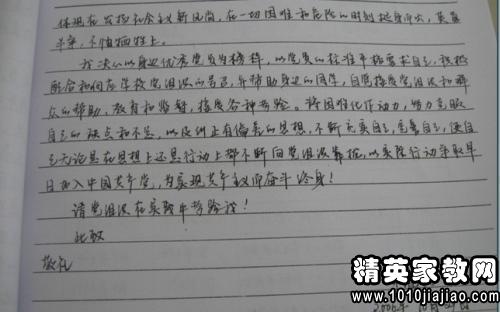 体现在发扬社会主义新风尚，在一切困难和危险的时刻挺身而出，英勇
斗争，不怕牺牲上。
我决心以身边优秀党员为榜样，以党员的标准严格要求自己，积极
配合和向在学校党组织的号召，并帮助身边的同学，自觉接受党组织和群
众的帮助、教育和监督，接受各种考验。将困难化作动力，努力克服
自己的缺点和不足，以及纠正有偏差的思想，不断充实自己，完善自己，使自
己无论是在思想上还是行动上都不断向党组织靠拢，以实际行动争取早
日加入中国共产党，为实现共产主义而奋斗终身！
请党组织在实践中考验我！
此致
敬礼
精英家教网
www.1010jiajiao.com